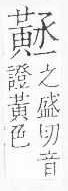 之盛切音
證黃色